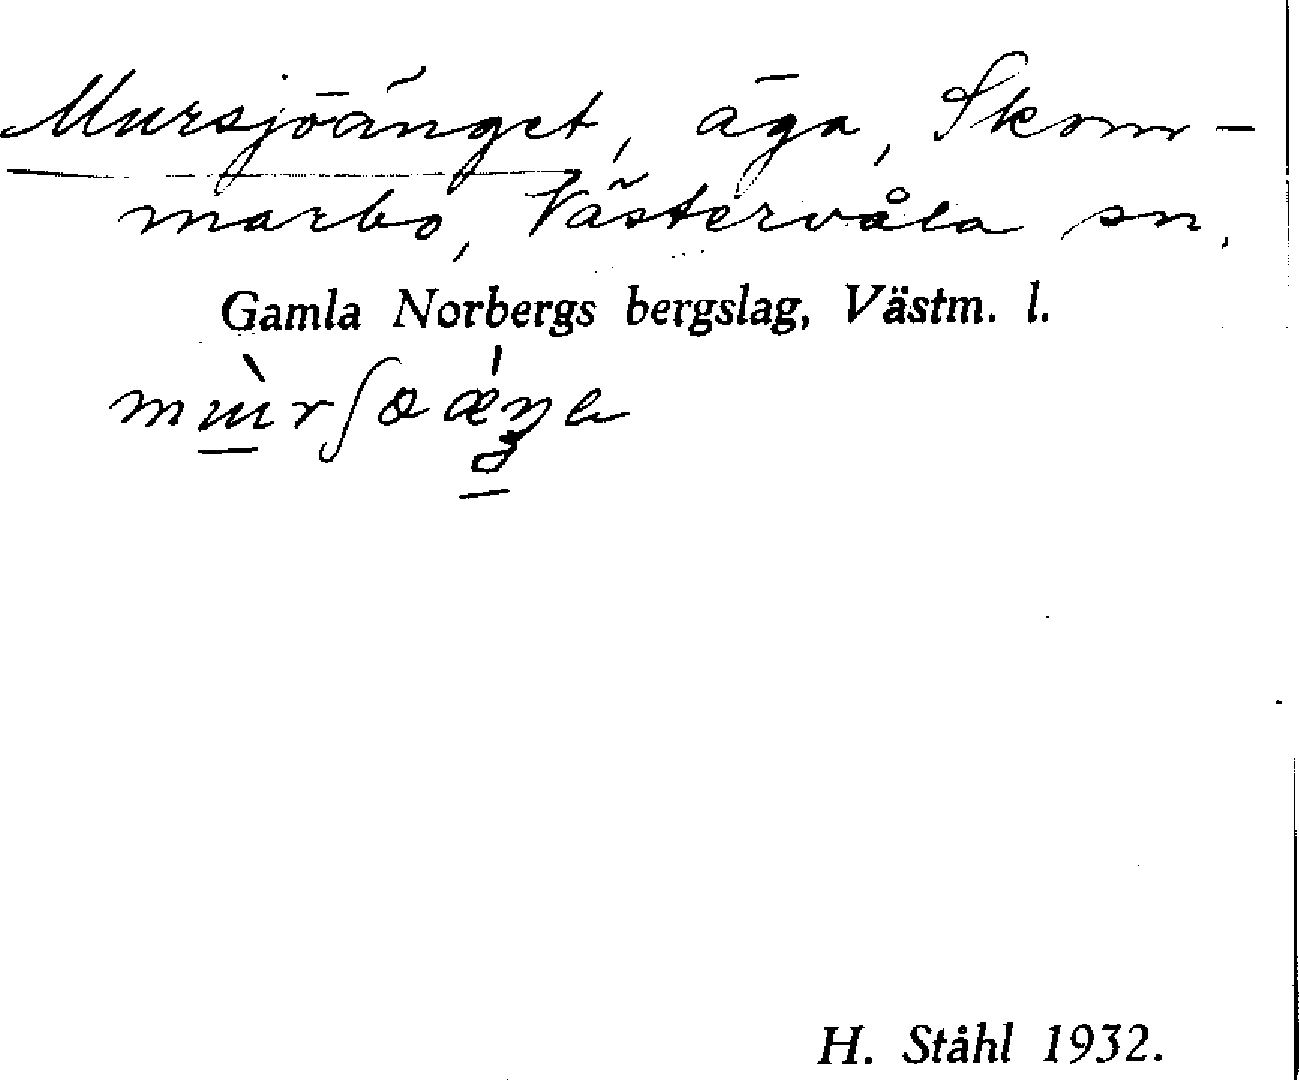 Mursjöänget, äga, Skom-
marbo, Västervåla sn.
Gamla Norbergs bergslag, Västm. l.
H. Ståhl 1932.